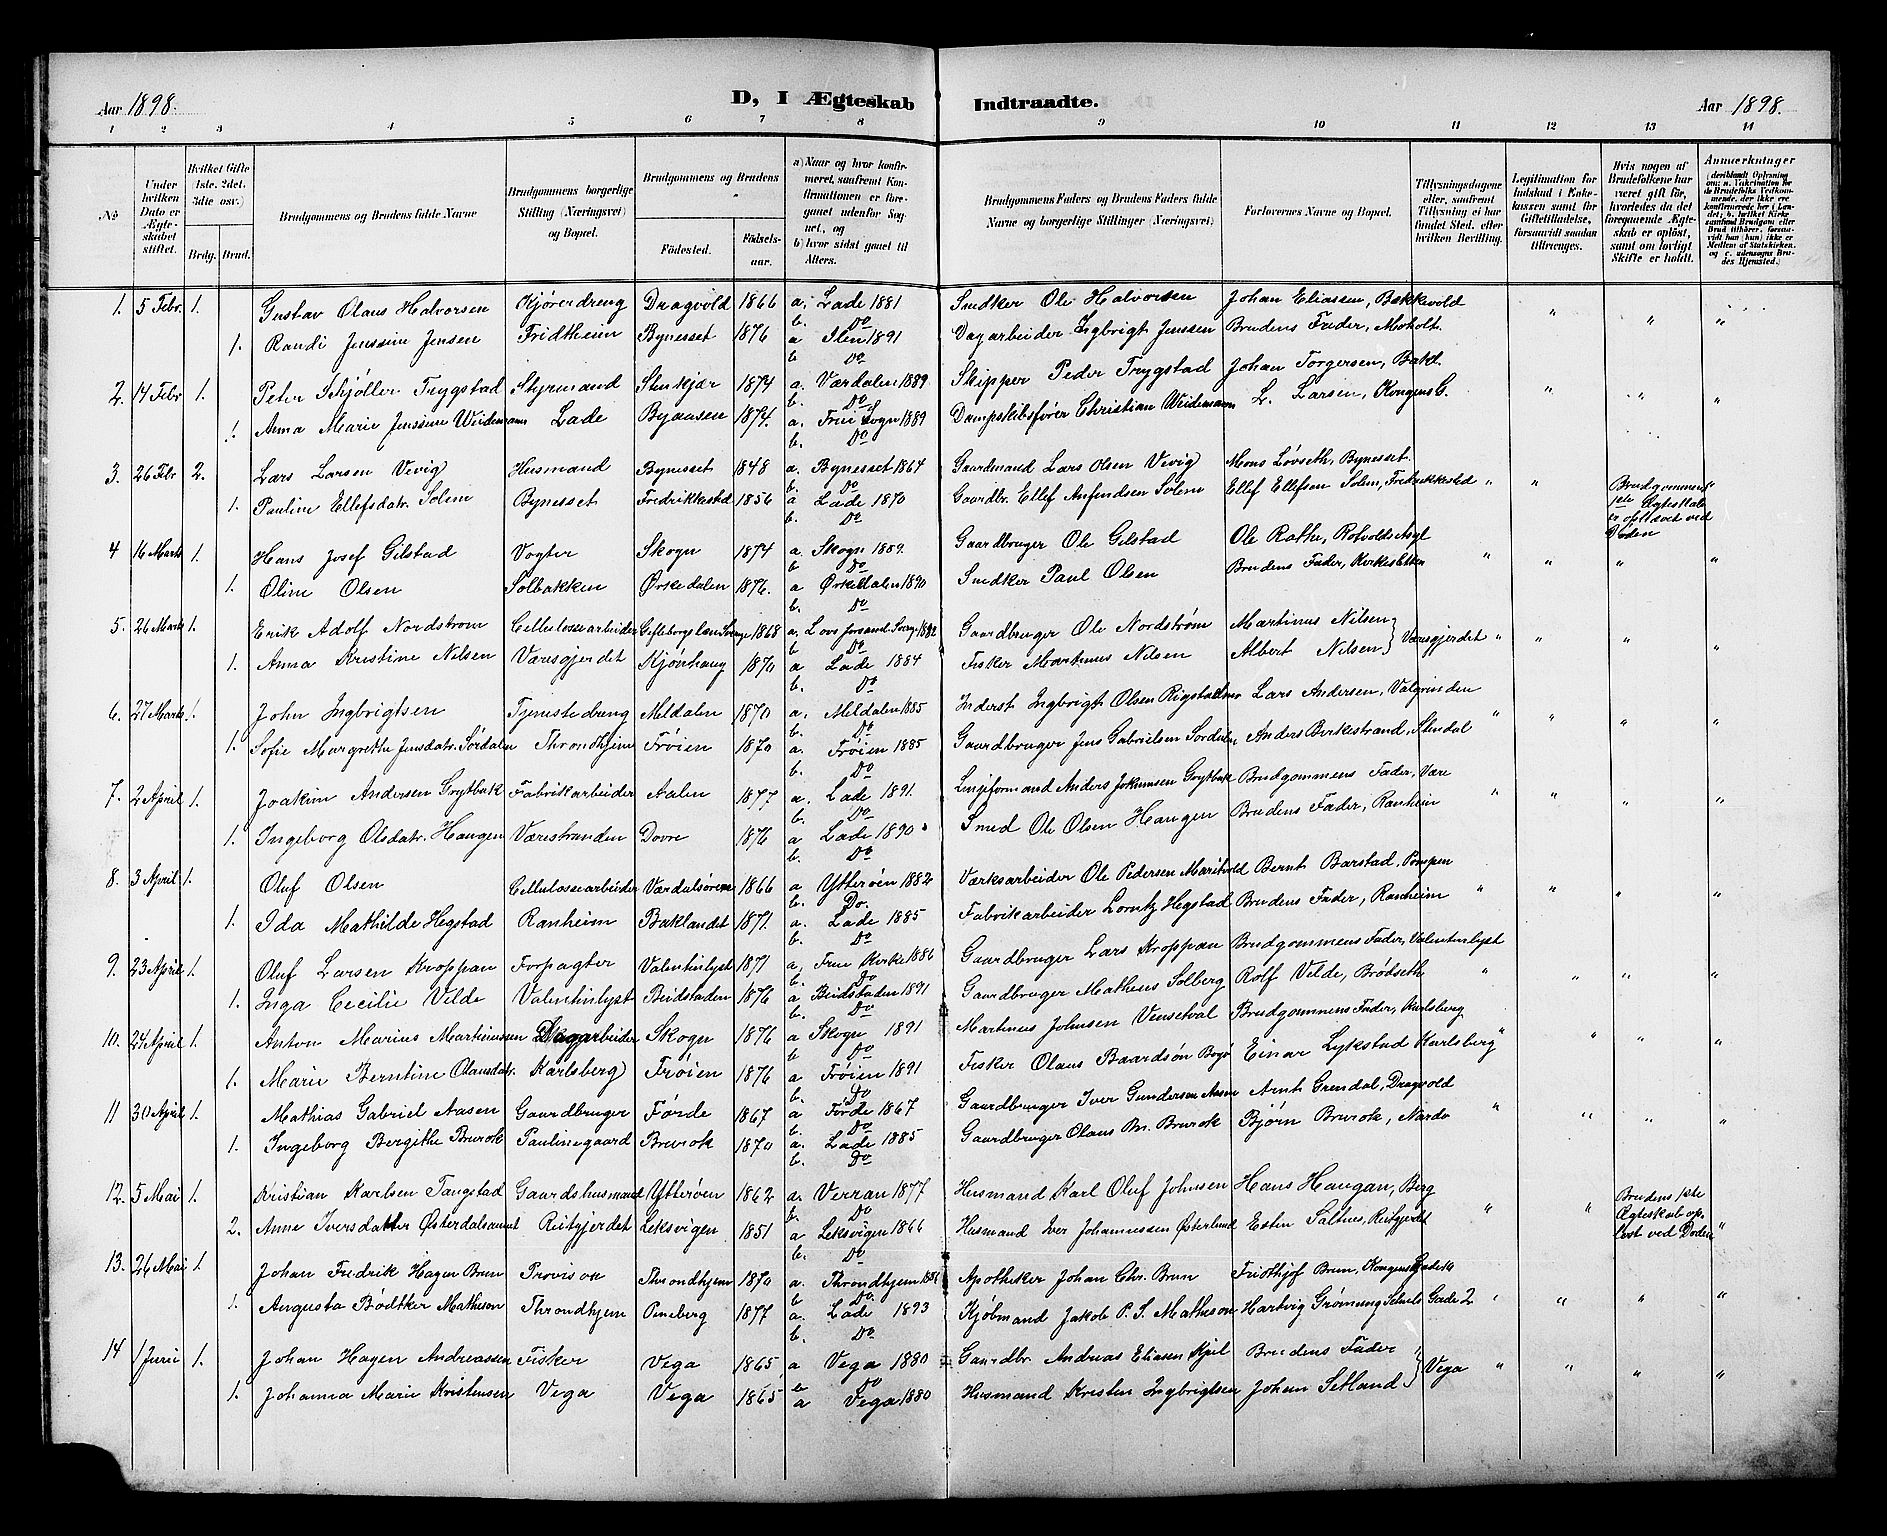 D, I Ægteskab Indtraadte.
Aar 1898.
Aar 1898.
1 2 3 4 5 6 7 8 9 10 11 12 13 14
No
Under hvilken Dato er Ægteskabet stiftet.
Hvilket Gifte 1ste. 2det. 3dte osv.
Brdg. Brud.
Brudgommens og Brudens fulde Navne
Brudgommens borgerlige Stilling (Næringsvei) og Bopæl.
Brudgommens og Brudens
Fødested.
Fødselsaar.
a) Naar og hvor konfirmeret, saafremt Konfirmationen er foregaaet udenfor Sognet, og
b) hvor sidst gaaet til Alters.
Brudgommens Faders og Brudens Faders fulde Navne og borgerlige Stillinger (Næringsvei)
Forlovernes Navne og Bopæl.
Tillysningsdagene eller, saafremt Tillysning ei har fundet Sted, efter hvilken Bevilling.
Legitimation for Indskud i Enkekassen samt for Giftetilladelse, forsaavidt saadan tiltrænges.
Hvis nogen af Brudefolkene har været gift før, hvorledes da det foregaaende Ægteskab er opløst, samt om lovligt Skifte er holdt.
Anmærkninger (deriblandt Oplysning om: a. Vakcination for de Brudefolks Vedkommende, der ikke ere konfirmerede her i Landet; b. hvilket Kirkesamfund Brudgom eller Brud tilhører, forsaavidt han (hun) ikke er Medlem af Statskirken, og c. udensogns Brudes Hjemsted.)
1. 5 Febr. 1. Gustav Olaus Halvorsen Kjørerdreng Dragvold 1866 a. Lade 1881 Snedker Ole Halvorsen Johan Eliassen, Bakkevold " " "
b. Do
1. Randi Jenssine Jensen Fridtheim Bynesset 1876 a Ilen 1891 Dagarbeider Ingbrigt Jenssen Brudens Fader, Moholt.
b. Do
2. 14 Febr 1. Peter Schjøller Trygstad Styrmand Stenkjær 1874 a. Værdalen 1889 Skipper Peder Trygstad Johan Torgersen, Bakl. " " "
b. Do
1. Anna Marie Jenssine Weidemann Lade Byaasen 1874. a. Frue Sogn 1889 Dampskibsfører Christian Weidemann L. Larsen, Kongens G.
b. Do
3. 26 Febr 2. Lars Larsen Vevig Husmand Bynesset 1848 a. Bynesset 1864 Gaardmand Lars Olsen Vevig Mons Løvseth, Bynesset.
b. Do
1. Pauline Ellefsdatr. Solem Bynesset Fredrikkestad 1856 a Lade 1870 Gaardbr. Ellef Anfindsen Solem Ellef Ellefsen Solem, Fredrikkestad " " Brudgommens 1ste Ægteskab er opløst ved Døden
b. Do
4 16 Marts 1. Hans Josef Gilstad Vogter Skogn 1874 a. Skogn 1889. Gaardbruger Ole Gilstad Ole Rathe, Rotvolds Asyl " " " "
b Do
1. Oline Olsen Solbakken Ørkedalen 1876. a Ørkedalen 1890 Snedker Paul Olsen Brudens Fader, Kirkesletten
b. Do
5. 26 Marts 1. Erik Adolf Nordstrøm Cellulosearbeider Gefleborgs Län Sverige 1868 a. Sverige 1882 Gaardbruger Ole Nordstrøm Martinus Nilsen } Væresgjerdet " " " "
b. Do
1. Anna Kristine Nilsen Væresgjerdet Kjønhaug 1870 a Lade 1884 Fisker Martinus Nilsen Albert Nilsen
b. Do
6. 27 Marts 1. John Ingbrigtsen Tjenestedreng Meldalen 1870 a. Meldalen 1885 Inderst Ingbrigt Olsen Lars Andersen, Valgrinden " " " "
b. Do
1. Sofie Margrethe Jensdatr. Sørdalen Throndhjem Frøien 1870 a. Frøien 1885 Gaardbruger Jens Gabrielsen Sørdalen Anders Birkestrand, Stendal
b. Do
7. 2 April 1. Joakim Andersen Grytbak Fabrikarbeider Aalen 1877 a. Lade 1891. Anders Jokumsen Grytbak Brudgommens Fader, Være " " " "
b. Do
1. Ingeborg Olsdatr. Haugen Værestranden Dovre 1876 a Lade 1890 Smed Ole Olsen Haugen Brudens Fader, Ranheim
b. Do
8. 3 April 1. Oluf Olsen Cellulosearbeider Værdalsøren 1866 a Ytterøen 1882 Værksarbeider Ole Pedersen Maritvold Bernt Barstad, Pompen " " " "
b. Do.
1. Ida Mathilde Hegstad Ranheim Baklandet 1871. a. Lade 1885 Fabrikarbeider Lorntz Hegstad Brudens Fader, Ranheim
b. Do
9. 23 April 1. Oluf Larsen Kroppan Forpagter Valentinlyst 1871 a. Frue Kirke 1886 Gaardbruger Lars Kroppan Brudgommens Fader, Valentinlyst " " " "
b. Do
1. Inga Cecilie Velde Valentinlyst Beidstaden 1876 a Beidstaden 1891 Gaardbruger Matheus Solberg Rolf Velde, Brødseth
b. Do
10. 24 April 1. Anton Marius Martinussen Dagarbeider Skogn 1876 a Skogn 1891 Martinus Johnsen Vensetval Brudgommens Fader, Karlsberg " " " "
b Do
1. Marie Berntine Olausdatr. Karlsberg Frøien 1876 a Frøien 1891 Fisker Olaus Baardsøn Bogø Einar Lykstad Karlsberg
b. Do
11 30 April 1. Mathias Gabriel Aasen Gaardbruger Førde 1867 a Førde 1867 Gaardbruger Iver Gundersen Aasen Arnt Grendal, Dragvold " " " "
b. Do
1. Ingeborg Bergithe Brurok Paulinegaard Brurok 1870 a. Lade 1885 Gaardbruger Olaus M. Brurok Bjørn Brurok, Nardo
b. Do
12. 5 Mai 1. Kristian Karlsen Tangstad Gaardshusmand Ytterøen 1862 a. Verran 1877 Husmand Karl Oluf Johnsen Hans Haugan, Berg " " Brudens 1ste Ægteskab opløst ved Døden "
b. Do
2. Anne Iversdatter Østerdalsaunet Reitgjerdet Leksvigen 1851 a Leksvigen 1866 Husmand Iver Johannessen Østerlund Esten Saltnes, Reitgjerdet
b. Do
13. 26 Mai 1. Johan Fredrik Hagen Brun Provisor Throndhjem 1870 a. Throndhjem 1886 Apotheker Johan Chr. Brun Fridthjof Brun, Kongens Gade " " " "
b Do.
1. Augusta Bødtker Matheson Throndhjem Pineberg 1877 a. Lade 1893 Kjøbmand Jakob P. S. Matheson Hartvig Grønning Schults Gade 2
b. Do
14 1 Juni 1. Johan Hagen Andreassen Fisker Vega 1865 a Vega 1880 Gaardbr. Andreas Eliasen Kjil Brudens Fader } Vega " " " "
b Do
1. Johanna Marie Kristensen Vega Vega 1865 a Vega 1880 Husmand Kristen Ingbrigtsen Johan Setland